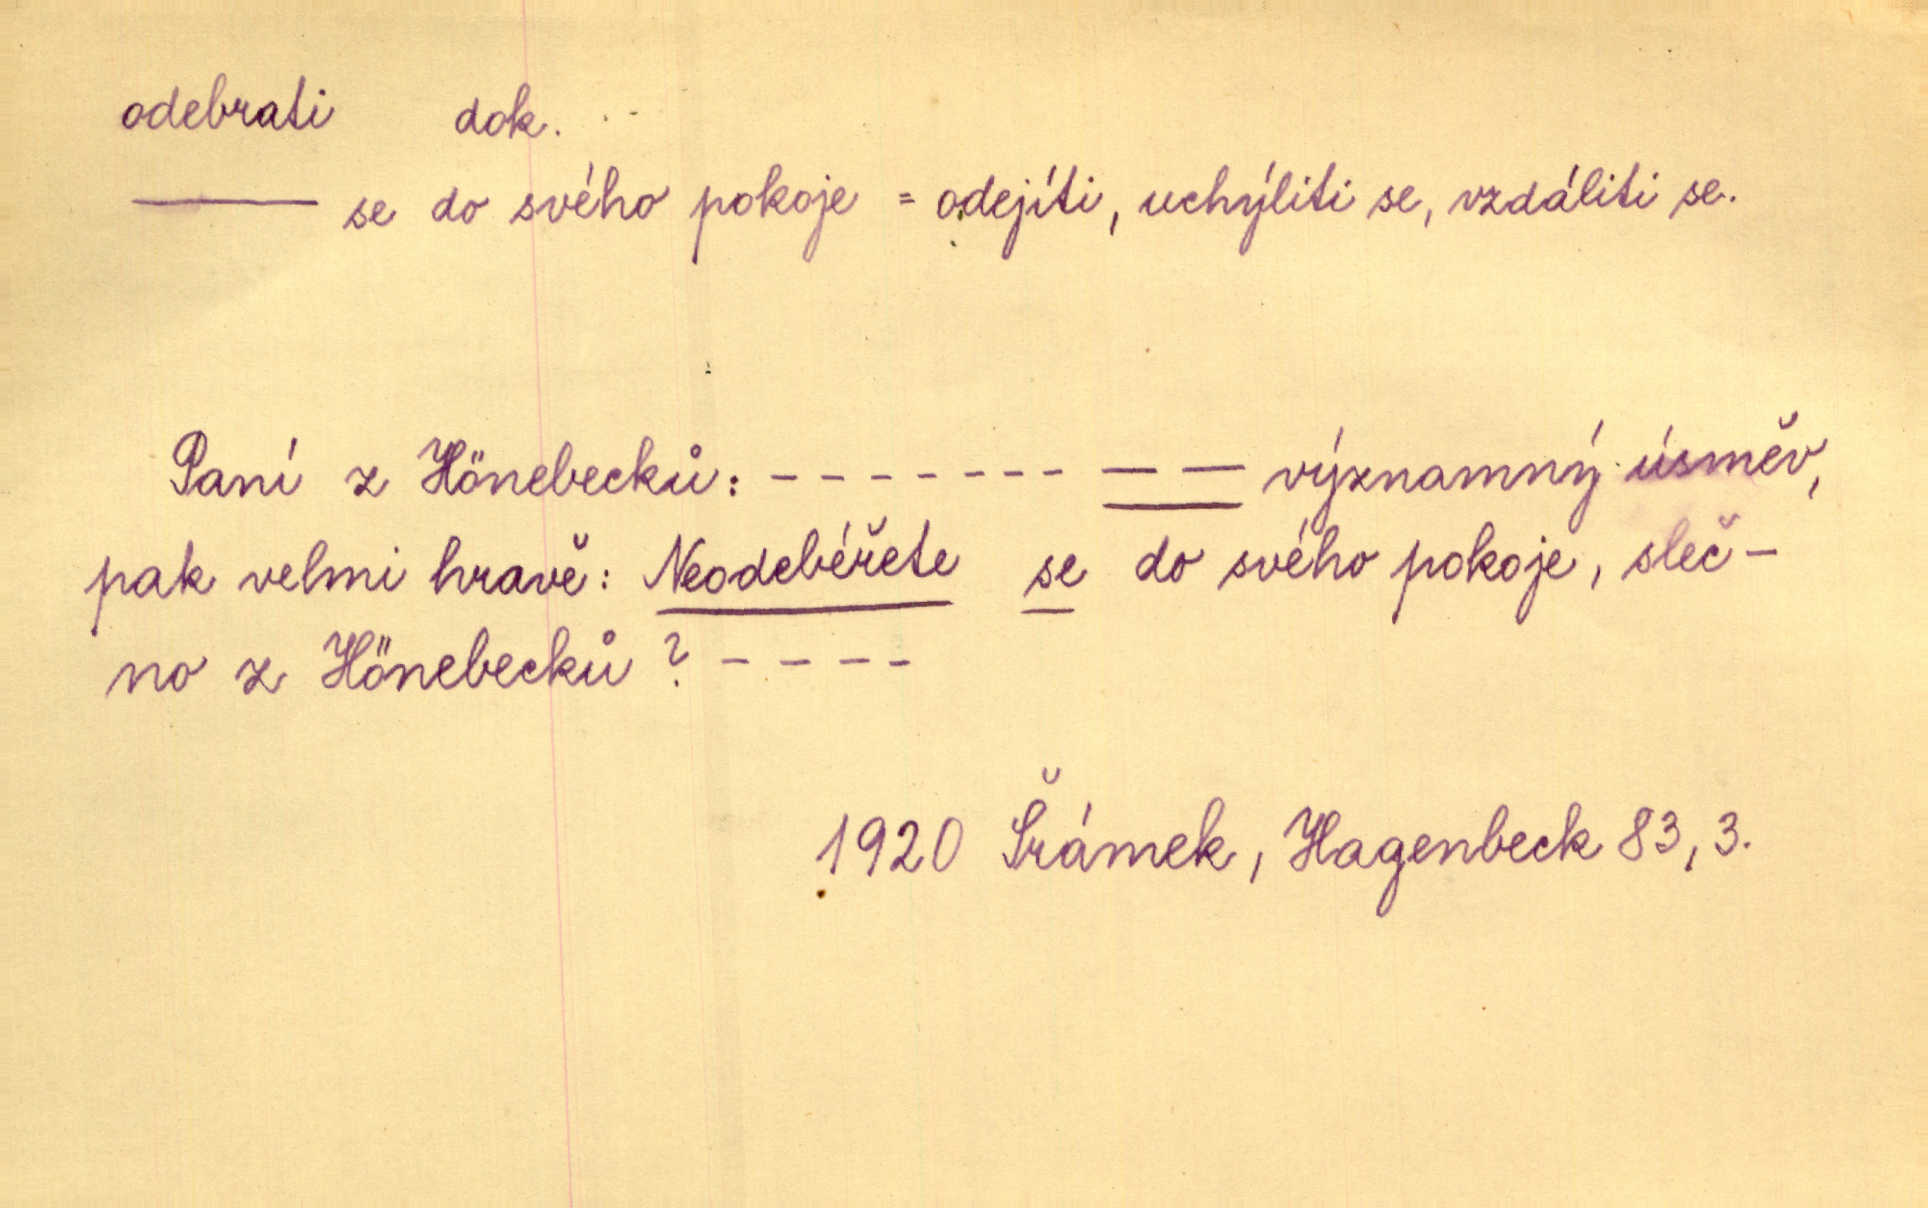 odebrati dok.
——— se do svého pokoje = odejíti, uchýliti se, vzdáliti se.
Paní z Hönebecků: - - - - - - - — — významný úsměv,
pak velmi hravě: Neodebéřete se do svého pokoje, sleč-
no z Hönebecků? - - - -
1920 Šrámek, Hagenbeck 83, 3.